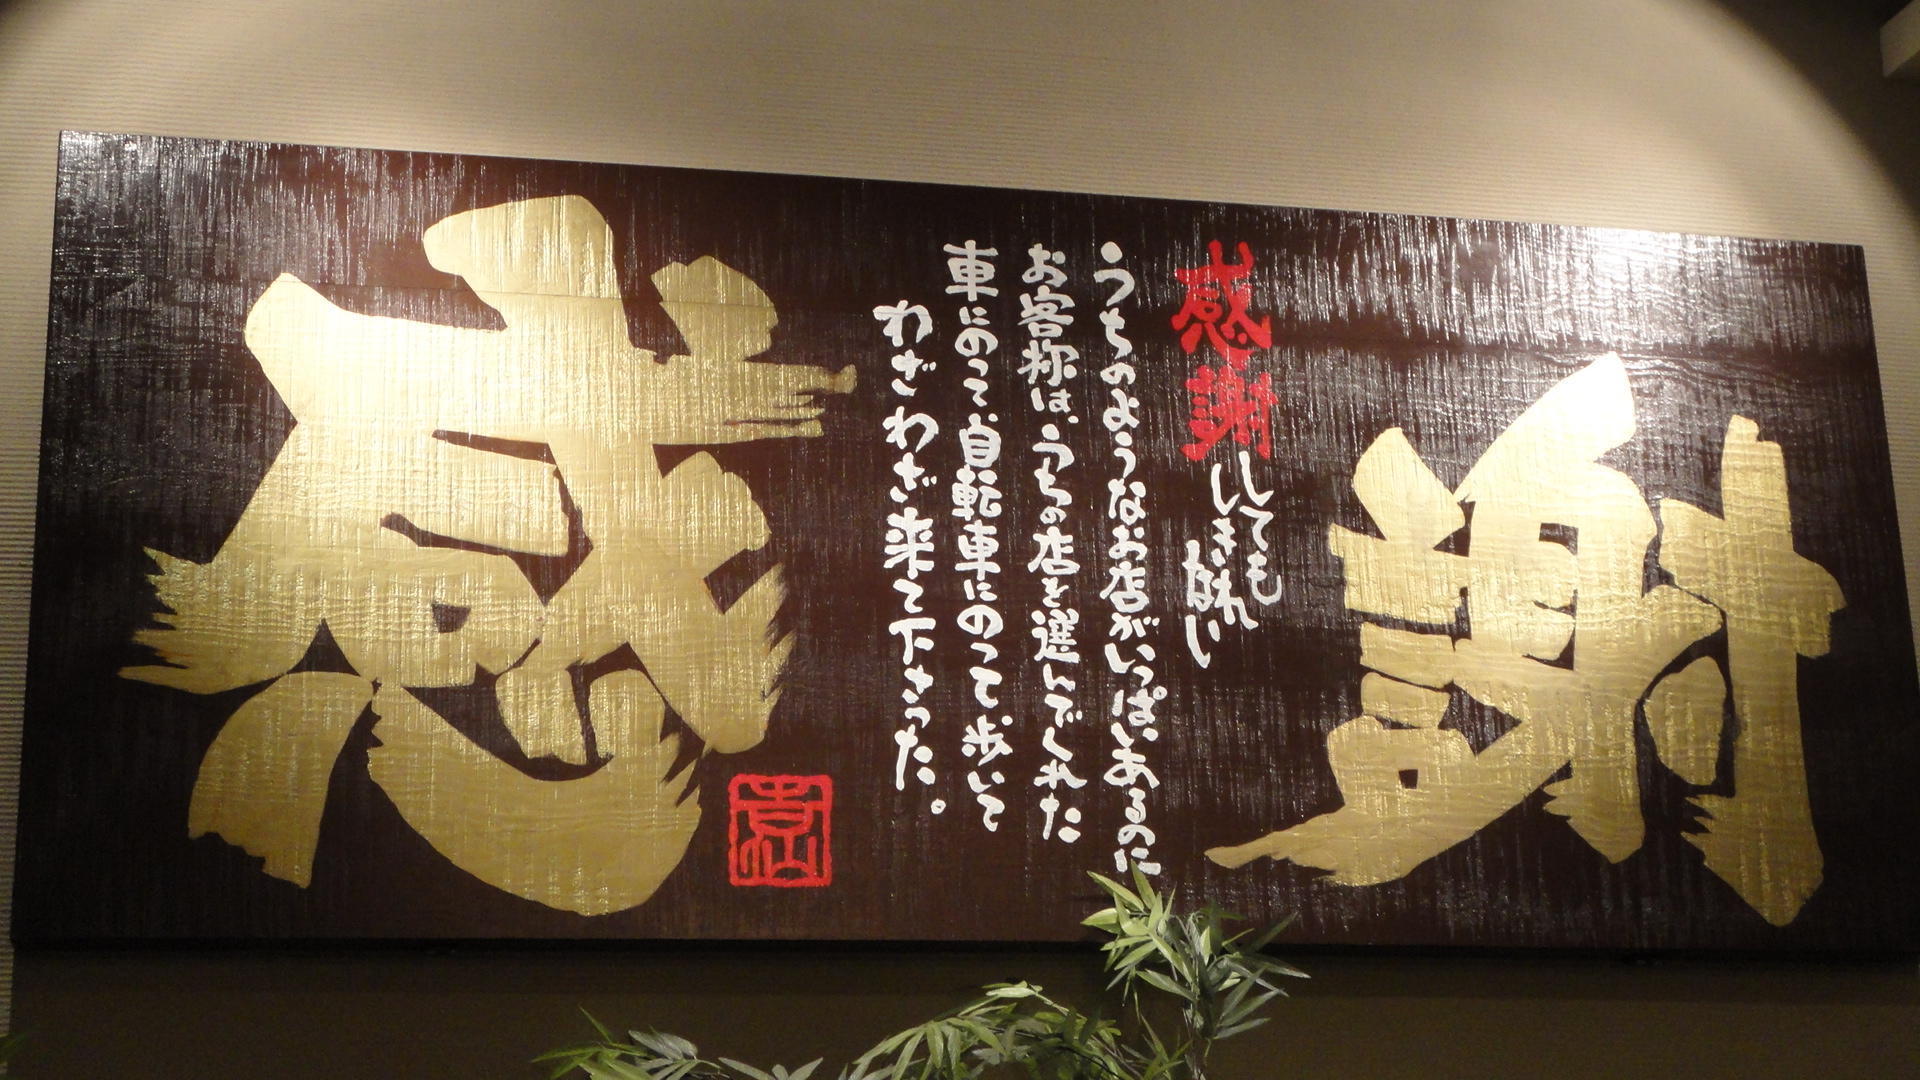 感謝
感謝
しても
しきれ
ない
うちのようなお店がいっぱいあるのに
お客様は、うちの店を選んでくれた
車にのって、自転車にのって歩いて
わざわざ来て下さった。